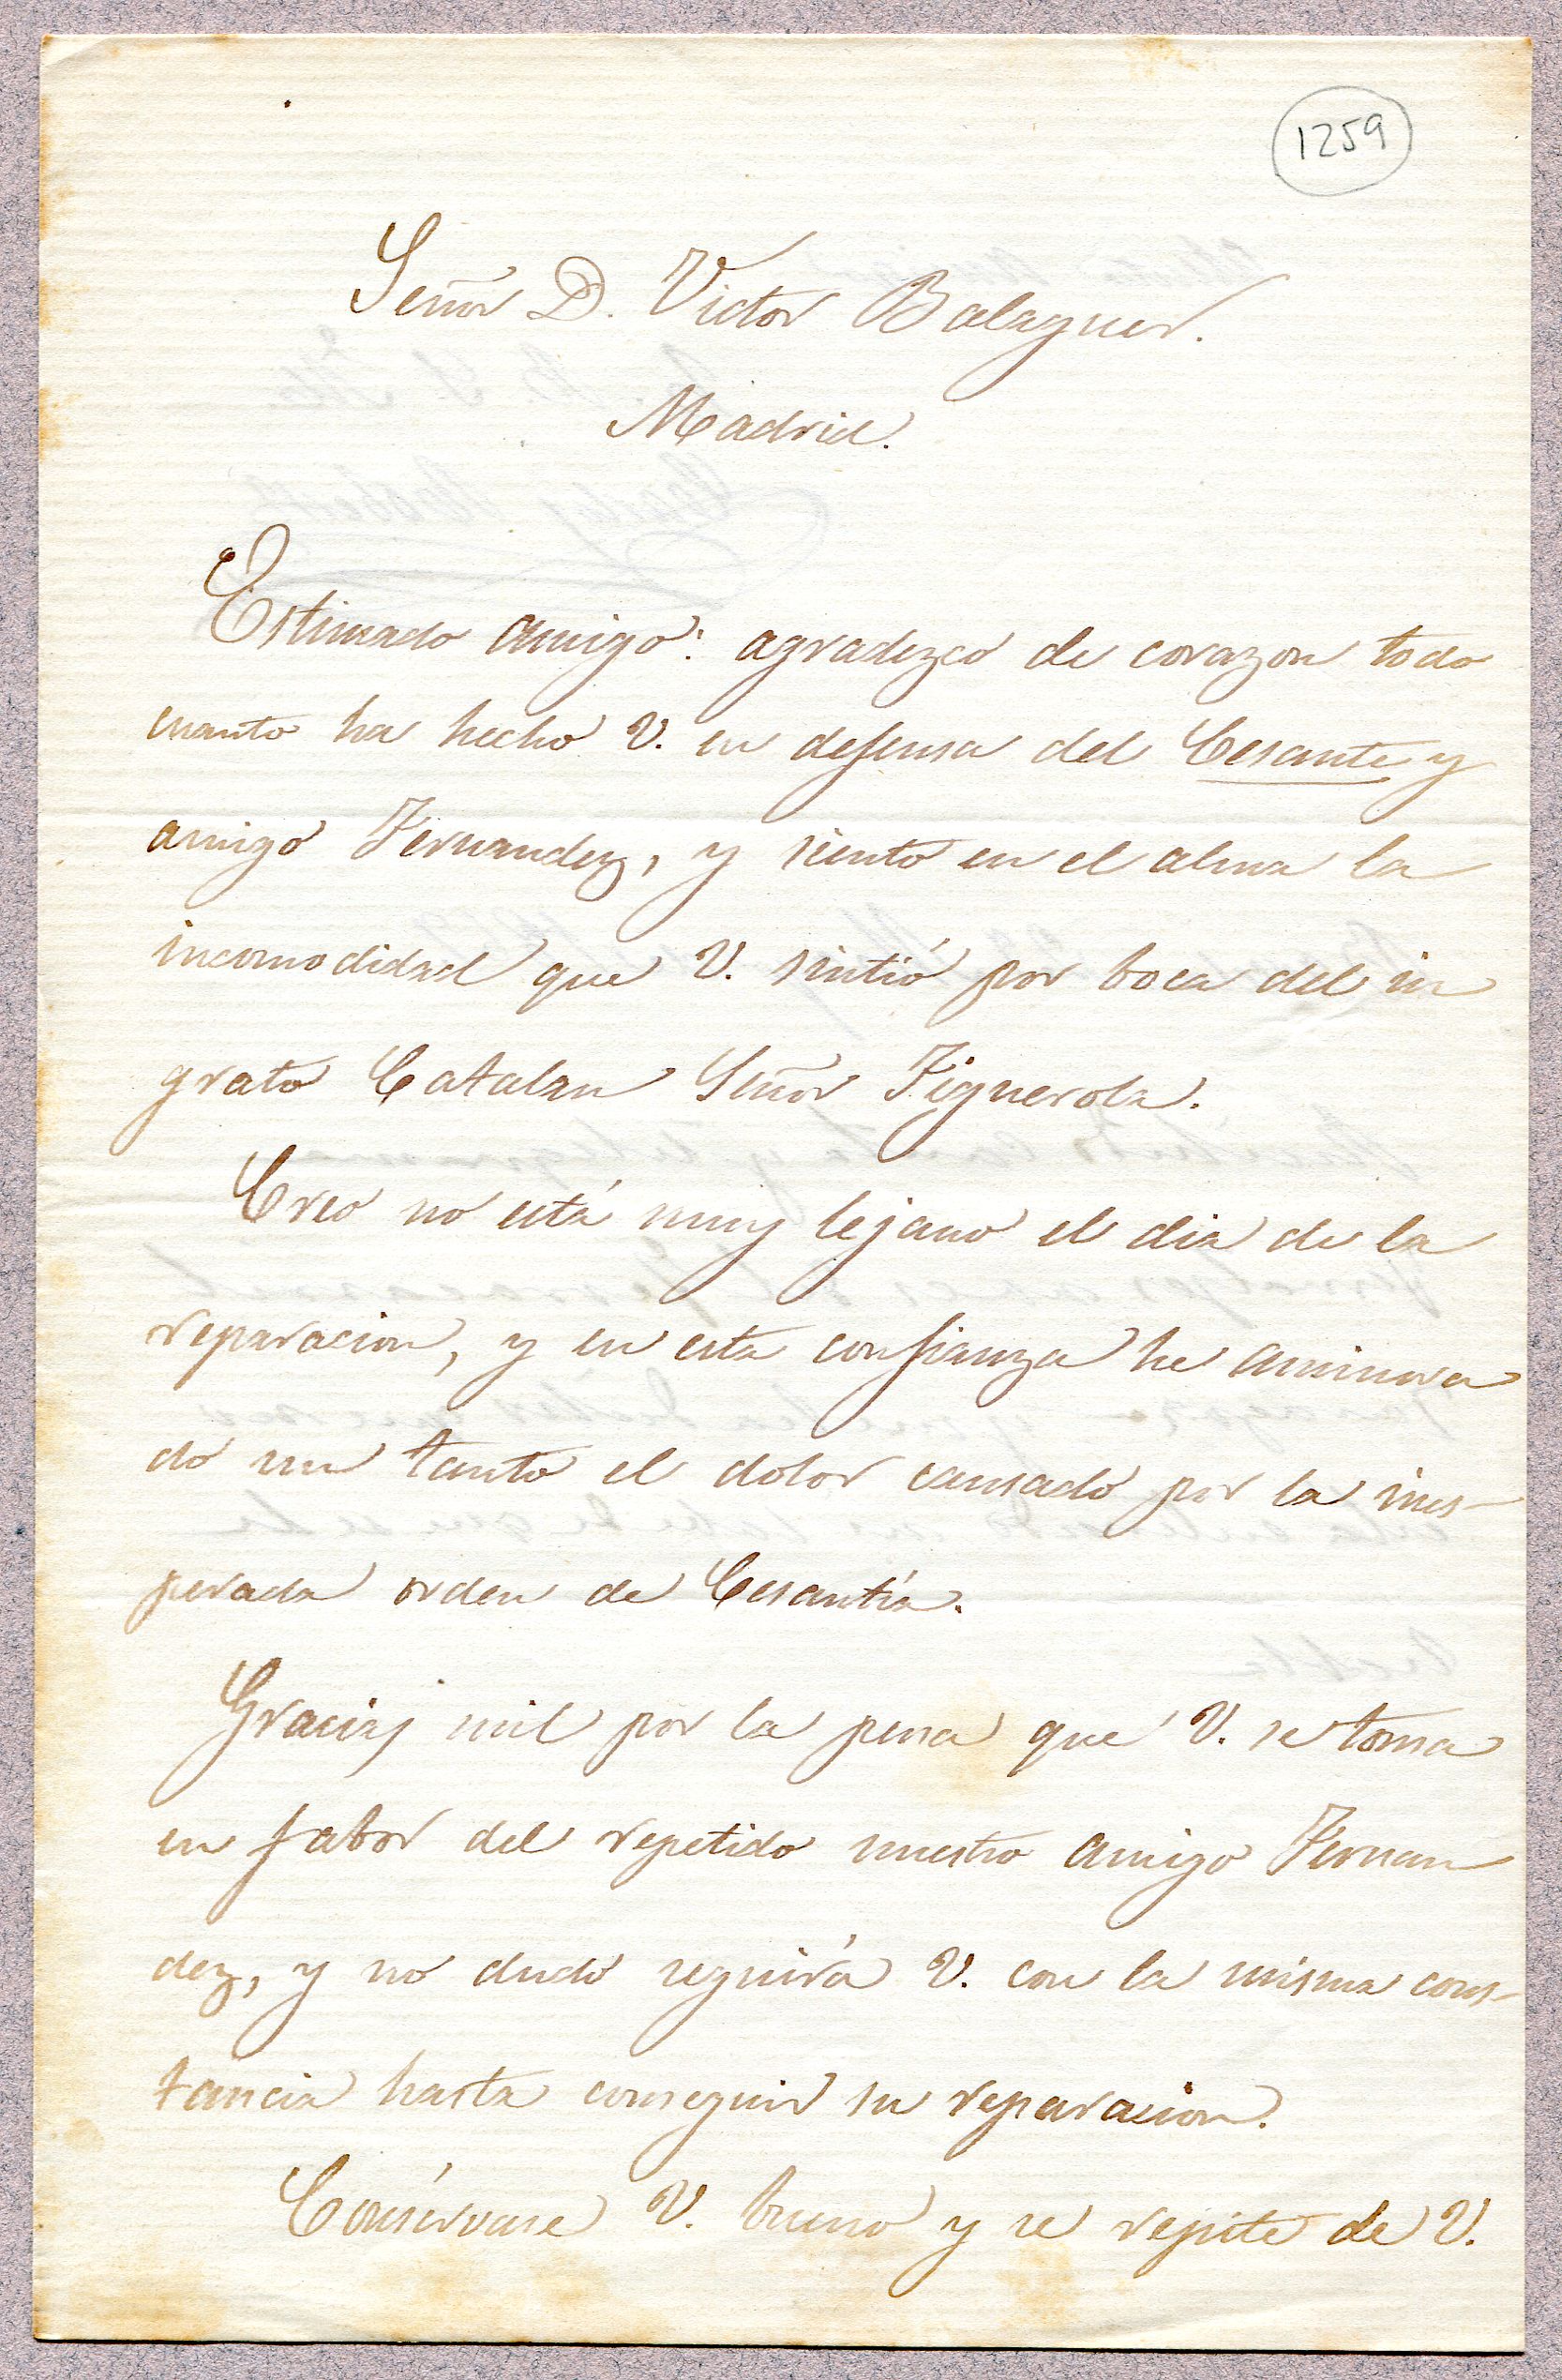 1259
Señor D. Victor Balaguer.
Madrid.
Estimado amigo: agradezco de corazon todo
cuanto ha hecho V. en defensa del Cesante y
amigo Fernandez, y siento en el alma la
incomodidad que V. sintió por boca del in
grato Catalan Señor Figuerola.
Creo no está muy lejano el dia de la
reparacion, y en esta confianza he aminora
do un tanto el dolor causado por la ines-
perada orden de Cesantía.
Gracias mil por la pena que V. se toma
en fabor del repetido nuestro amigo Fernan
dez, y no dudo seguirá V. con la misma cons-
tancia hasta conseguir su reparacion.
Consérvase V. bueno y se repite de V.